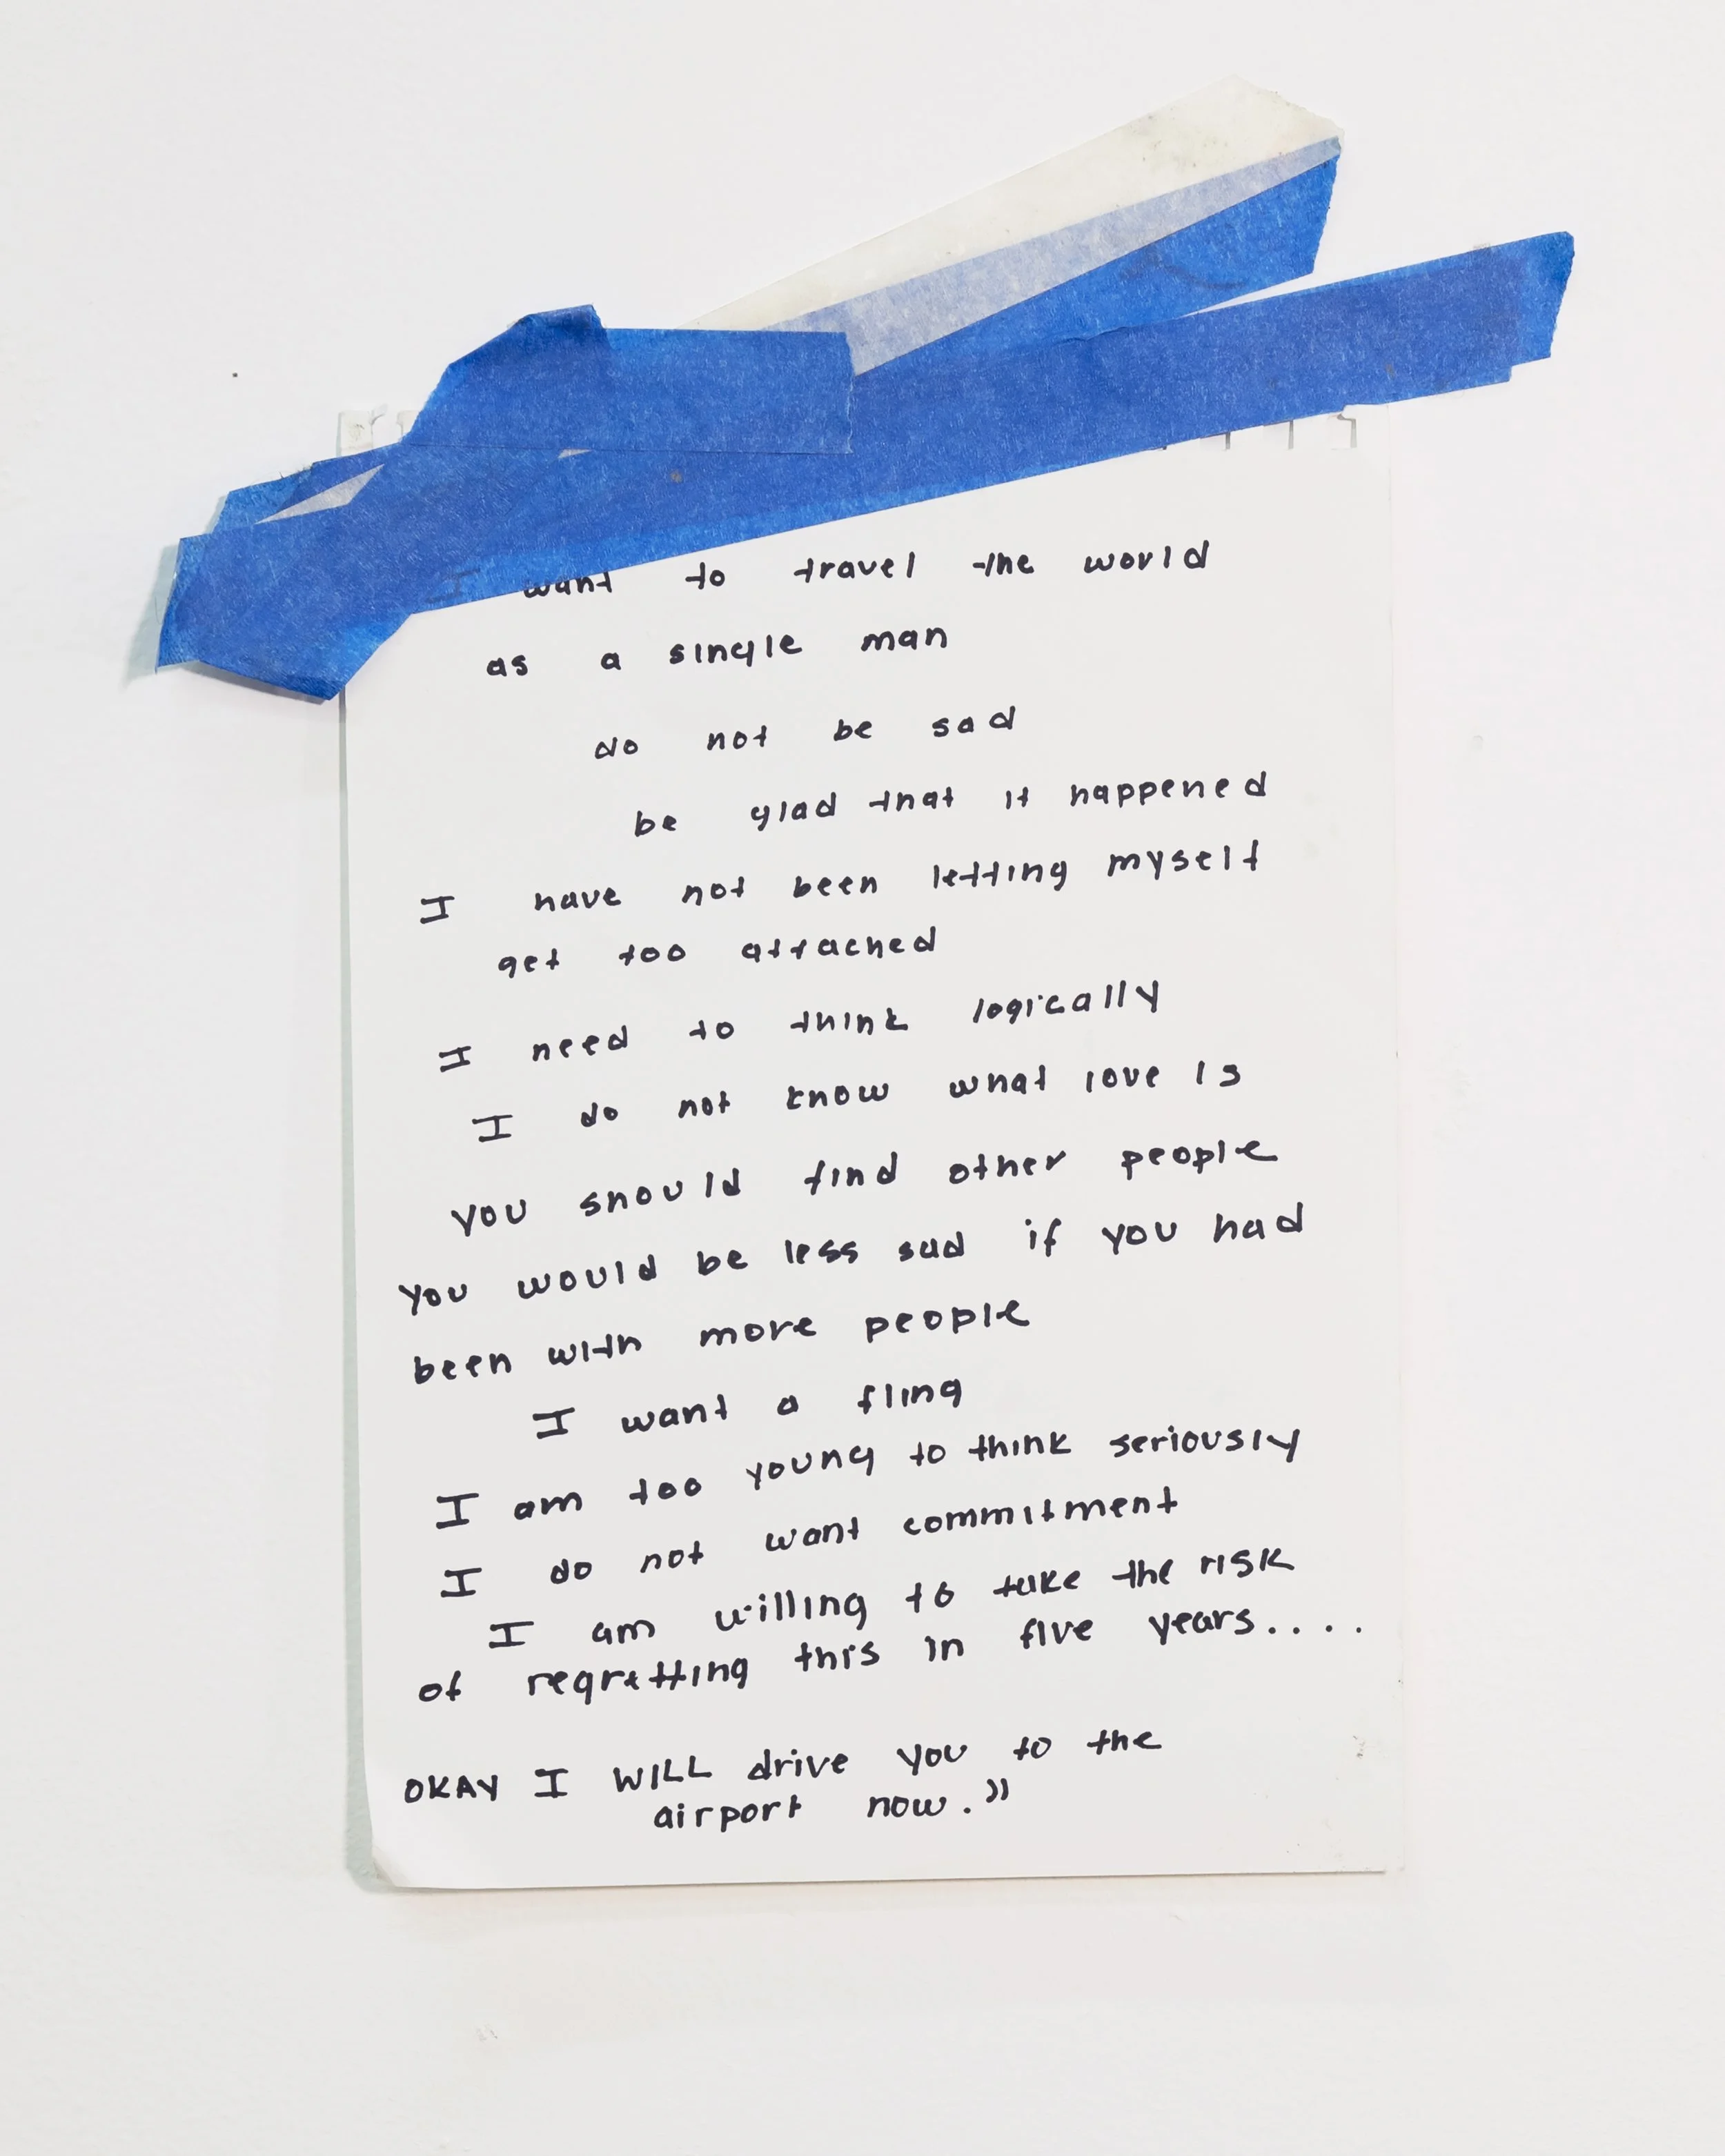 I want to travel the world
as a single man
do not be sad
be glad that it happened
I have not been letting myself
get too attached
I need to think logically
I do not know what love is
you should find other people
you would be less sad if you had
been with more people
I want a fling
I am too young to think seriously
I do not want commitment
I am willing to take the risk
of regretting this in five years....
OKAY I WILL drive you to the
airport now.”